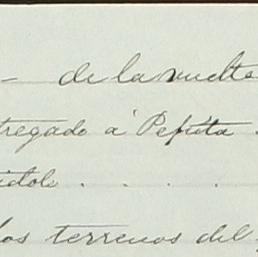 - de la vuelta
tregado á Pepita
idole . . . .
los terrenos del